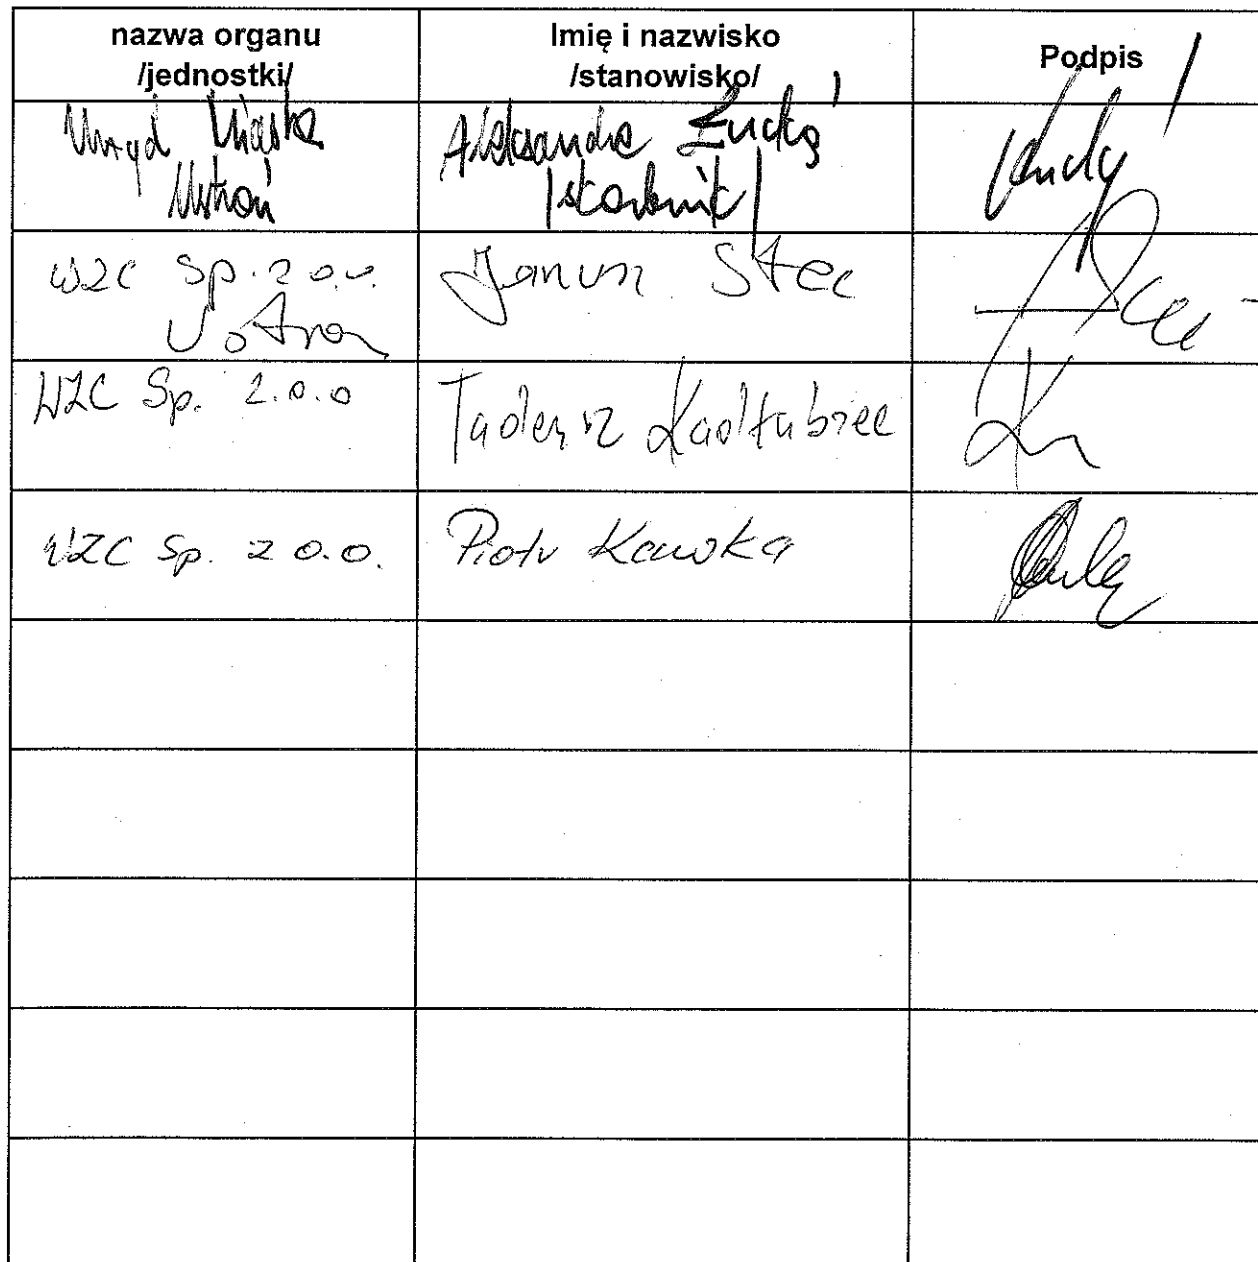 nazwa organu
/jednostki/
Imię i nazwisko
/stanowisko/
Podpis
Urząd Miasta
Ustroń
Aleksandra Łuckoś
/skarbnik/
WZC Sp. z o.o.
Ustroń
Janusz Stec
WZC Sp. z.o.o
Tadeusz Kadłubiec
WZC Sp. z o.o.
Piotr Kawka